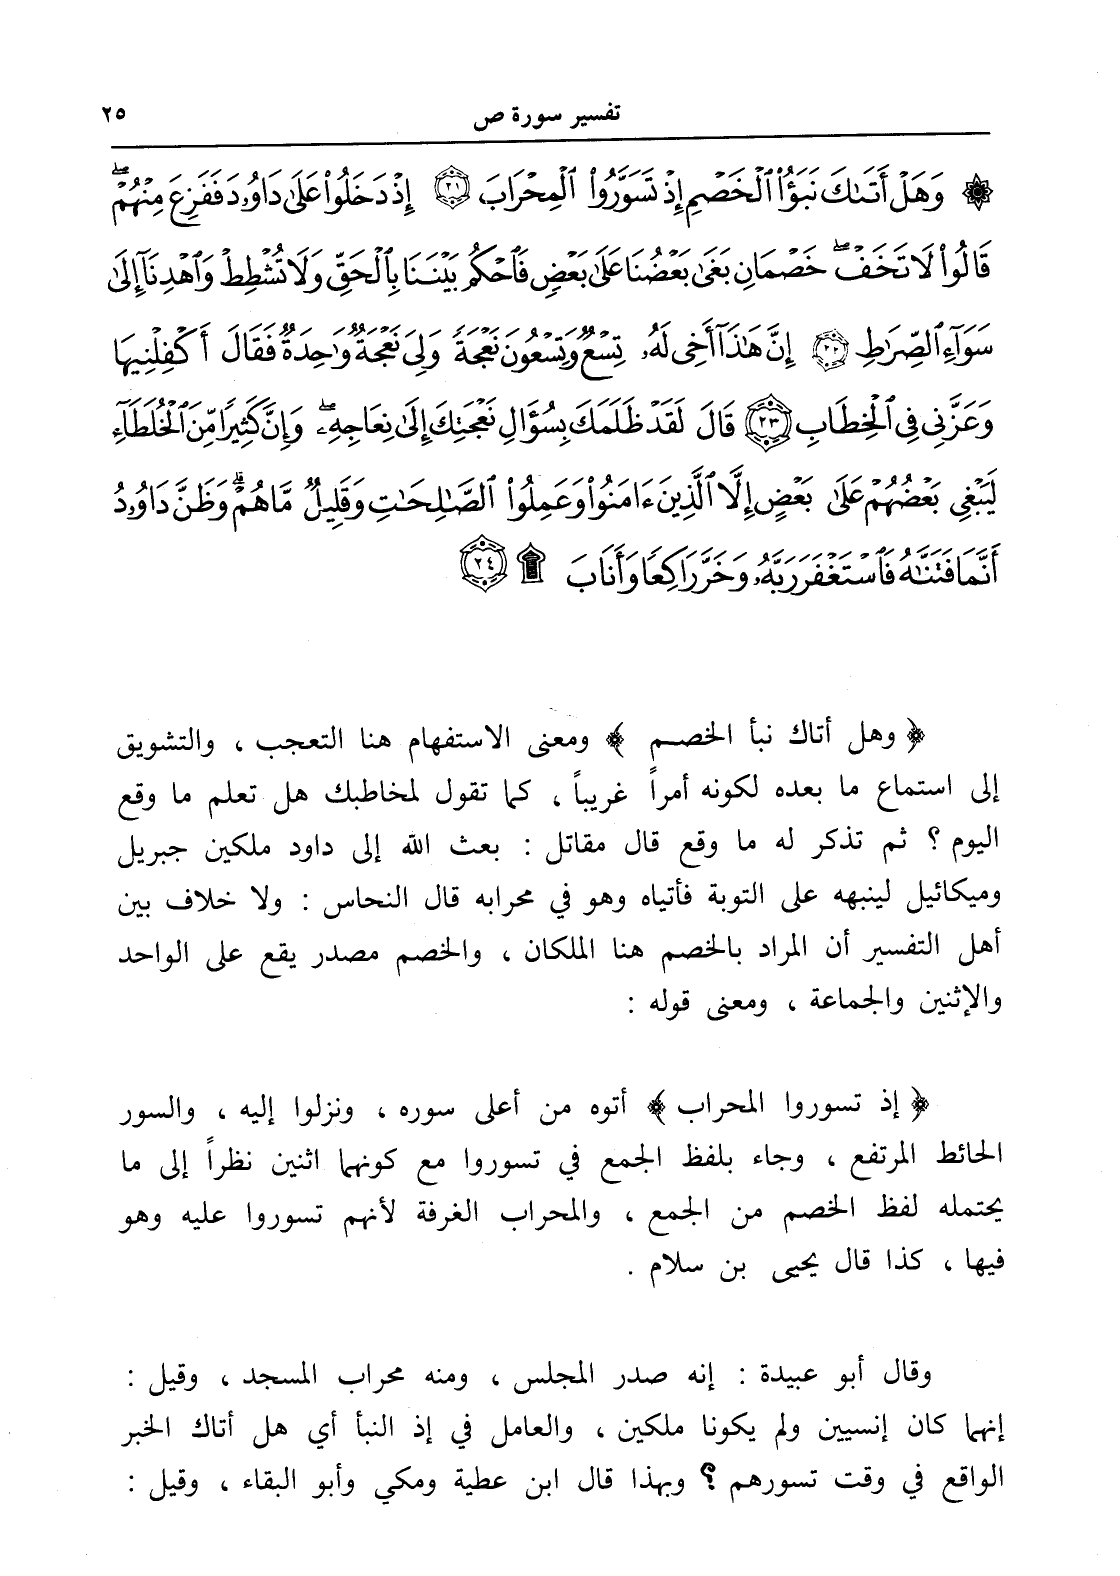 تفسير سورة ص ٢٥
۞ وَهَلْ أَتَىٰكَ نَبَؤُا۟ ٱلْخَصْمِ إِذْ تَسَوَّرُوا۟ ٱلْمِحْرَابَ ٢١ إِذْ دَخَلُوا۟ عَلَىٰ دَاوُۥدَ فَفَزِعَ مِنْهُمْ ۖ
قَالُوا۟ لَا تَخَفْ ۖ خَصْمَانِ بَغَىٰ بَعْضُنَا عَلَىٰ بَعْضٍ فَٱحْكُم بَيْنَنَا بِٱلْحَقِّ وَلَا تُشْطِطْ وَٱهْدِنَآ إِلَىٰ
سَوَآءِ ٱلصِّرَٰطِ ٢٢ إِنَّ هَٰذَآ أَخِى لَهُۥ تِسْعٌ وَتِسْعُونَ نَعْجَةً وَلِىَ نَعْجَةٌ وَٰحِدَةٌ فَقَالَ أَكْفِلْنِيهَا
وَعَزَّنِى فِى ٱلْخِطَابِ ٢٣ قَالَ لَقَدْ ظَلَمَكَ بِسُؤَالِ نَعْجَتِكَ إِلَىٰ نِعَاجِهِۦ ۖ وَإِنَّ كَثِيرًا مِّنَ ٱلْخُلَطَآءِ
لَيَبْغِى بَعْضُهُمْ عَلَىٰ بَعْضٍ إِلَّا ٱلَّذِينَ ءَامَنُوا۟ وَعَمِلُوا۟ ٱلصَّٰلِحَٰتِ وَقَلِيلٌ مَّا هُمْ ۗ وَظَنَّ دَاوُۥدُ
أَنَّمَا فَتَنَّٰهُ فَٱسْتَغْفَرَ رَبَّهُۥ وَخَرَّ رَاكِعًا وَأَنَابَ ۩ ٢٤
﴿ وهل أتاك نبأ الخصم ﴾ ومعنى الاستفهام هنا التعجب ، والتشويق
إلى استماع ما بعده لكونه أمراً غريباً ، كما تقول لمخاطبك هل تعلم ما وقع
اليوم ؟ ثم تذكر له ما وقع قال مقاتل : بعث الله إلى داود ملكين جبريل
وميكائيل لينبهه على التوبة فأتياه وهو في محرابه قال النحاس : ولا خلاف بين
أهل التفسير أن المراد بالخصم هنا الملكان ، والخصم مصدر يقع على الواحد
والإثنين والجماعة ، ومعنى قوله :
﴿ إذ تسوروا المحراب ﴾ أتوه من أعلى سوره ، ونزلوا إليه ، والسور
الحائط المرتفع ، وجاء بلفظ الجمع في تسوروا مع كونهما اثنين نظراً إلى ما
يحتمله لفظ الخصم من الجمع ، والمحراب الغرفة لأنهم تسوروا عليه وهو
فيها ، كذا قال يحيى بن سلام .
وقال أبو عبيدة : إنه صدر المجلس ، ومنه محراب المسجد ، وقيل :
إنهما كان إنسيين ولم يكونا ملكين ، والعامل في إذ النبأ أي هل أتاك الخبر
الواقع في وقت تسورهم ؟ وبهذا قال ابن عطية ومكي وأبو البقاء ، وقيل :